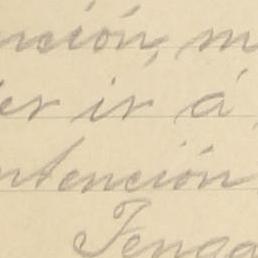 nción, m
er ir á
ntención
Tenga